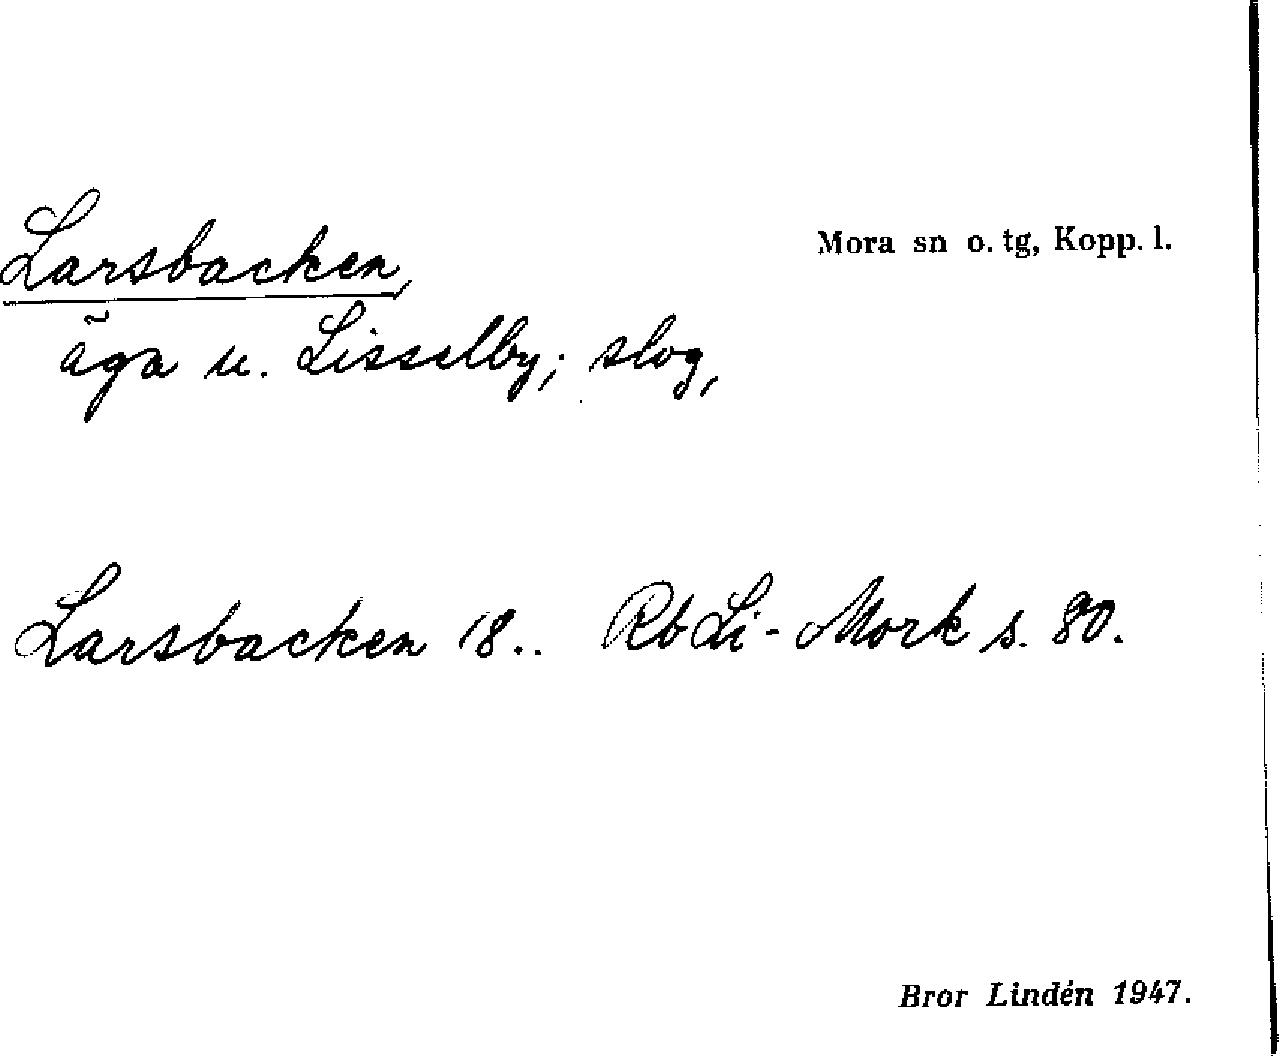 Larsbacken,
Mora sn o. tg, Kopp. l.
äga u. Lisselby; slog,
Larsbacken 18.. Rb Li - Mork s. 80.
Bror Lindén 1947.